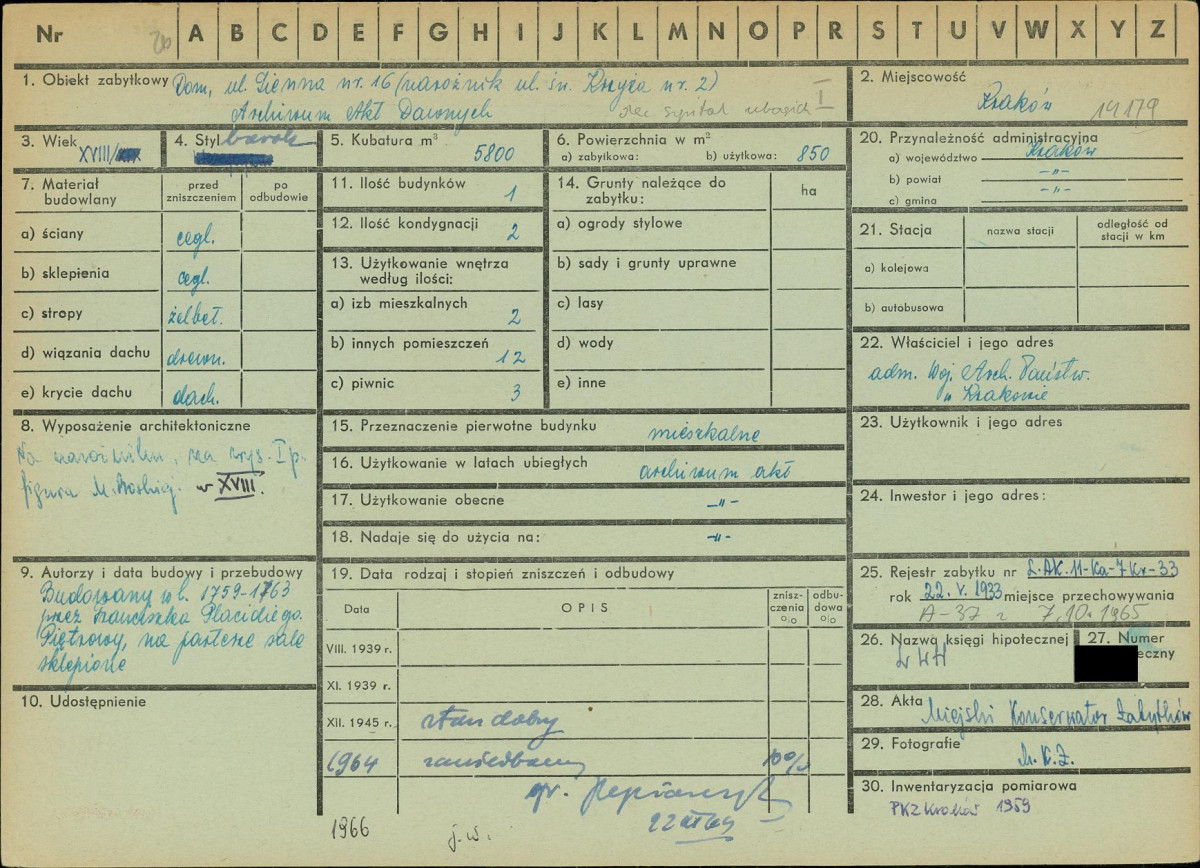 Nr A B C D E F G H I J K L M N O P R S T U V W X Y Z
1. Obiekt zabytkowy Dom, ul. Sienna nr. 16 (narożnik ul. św. Krzyża nr. 2)
Archiwum Akt Dawnych
2. Miejscowość
Kraków 14179
3. Wiek XVIII/XIX
4. Styl barok
5. Kubatura m³
5800
6. Powierzchnia w m²
a) zabytkowa: b) użytkowa: 850
7. Materiał budowlany
przed zniszczeniem
po odbudowie
a) ściany cegl.
b) sklepienia cegl.
c) stropy żelbet.
d) wiązania dachu drewn.
e) krycie dachu dach.
8. Wyposażenie architektoniczne
Na narożniku, na wys. I p.
figura M. Boskiej. w XVIII.
9. Autorzy i data budowy i przebudowy
Budowany w l. 1759-1763
przez Franciszka Placidiego.
Piętrowy, na parterze sale
sklepione
10. Udostępnienie
11. Ilość budynków 1
12. Ilość kondygnacji 2
13. Użytkowanie wnętrza
według ilości:
a) izb mieszkalnych
2
b) innych pomieszczeń
12
c) piwnic 3
14. Grunty należące do
zabytku:
ha
a) ogrody stylowe
b) sady i grunty uprawne
c) lasy
d) wody
e) inne
15. Przeznaczenie pierwotne budynku mieszkalne
16. Użytkowanie w latach ubiegłych archiwum akt
17. Użytkowanie obecne -"-
18. Nadaje się do użycia na: -"-
19. Data rodzaj i stopień zniszczeń i odbudowy
Data OPIS
znisz-
czenia
o/o
odbu-
dowa
o/o
VIII. 1939 r.
XI. 1939 r.
XII. 1945 r. stan dobry
1964 zaniedbany 10%
1966 j.w.
20. Przynależność administracyjna
a) województwo Kraków
b) powiat -"-
c) gmina -"-
21. Stacja
nazwa stacji
odległość od
stacji w km
a) kolejowa
b) autobusowa
22. Właściciel i jego adres
adm. Woj. Arch. Państw.
w Krakowie
23. Użytkownik i jego adres
24. Inwestor i jego adres:
25. Rejestr zabytku nr L.AK.11-Ka-7Kr-33
rok 22.V.1933 miejsce przechowywania
A-37 z 7.10.1965
26. Nazwa księgi hipotecznej
LWH
27. Numer
eczny
28. Akta Miejski Konserwator Zabytków
29. Fotografie
M.K.Z.
30. Inwentaryzacja pomiarowa
PKZ Kraków 1959